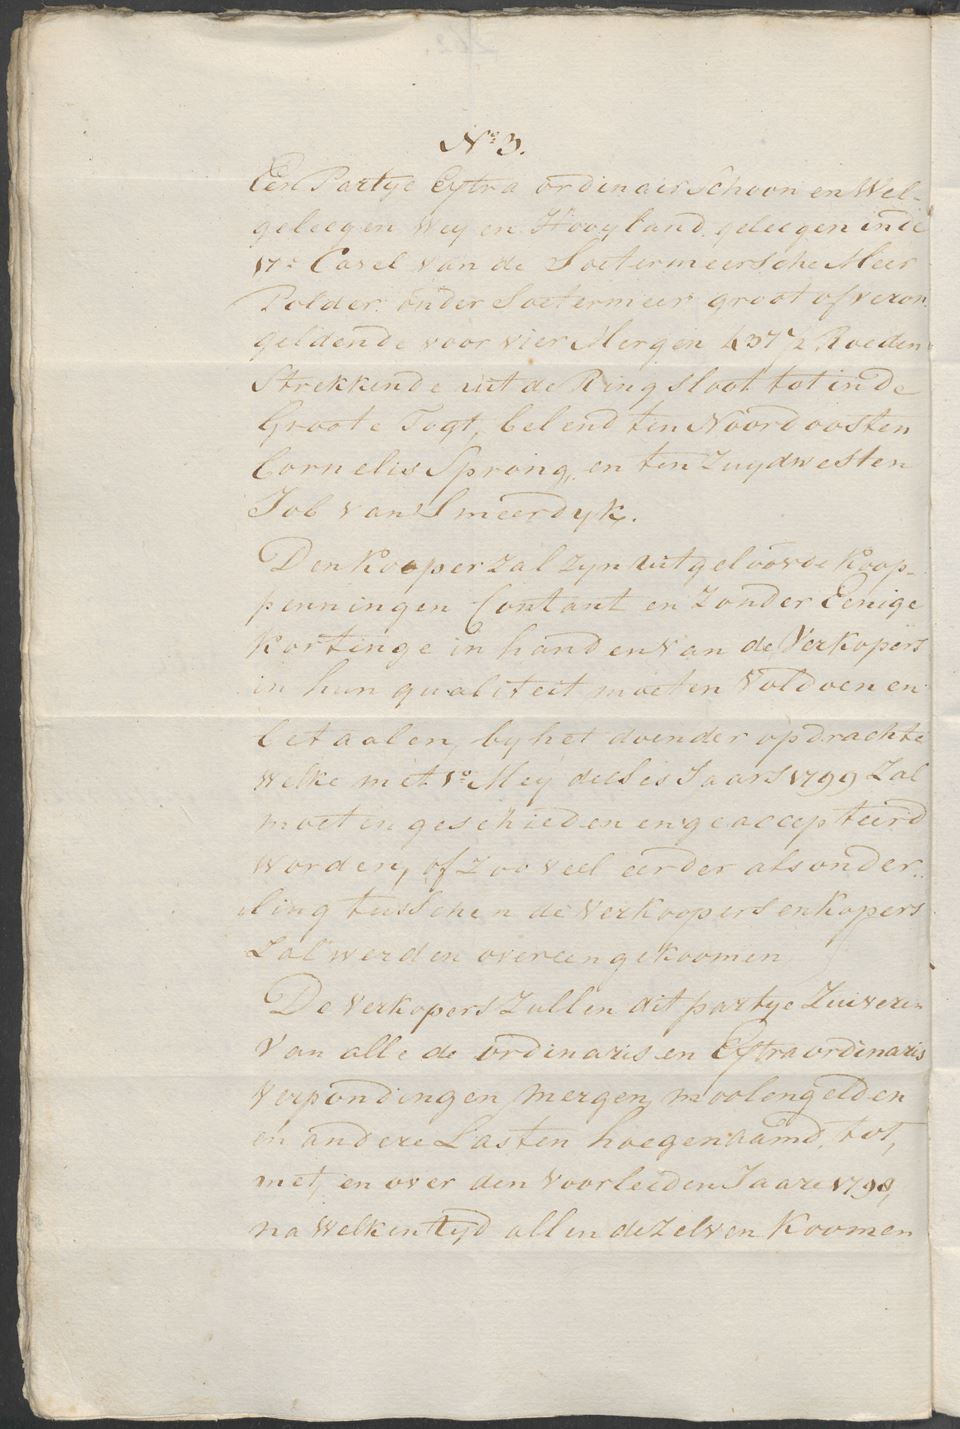 N.º 3.
Een Partye Extra ordinair Schoon en Wel-
geleegen Wey en Hooyland, geleegen in de
17e Cavel van de Soetermeersche Meer
Polder onder Soetermeer groot of veron
geldende voor vier Mergen 437½ Roeden
Strekkende uit de Ringsloot tot in de
Groote Togt, belend ten Noordoosten
Cornelis Sprong, en ten Zuydwesten
Job van Smeerdyk.
Den Kooper zal zyn uitgeloovde Koop-
penningen Contant en Zonder Eenige
Kortinge in handen van de Verkopers
in hun qualiteit moeten Voldoen en
betaalen, by het doen der opdrachte
Welke met 1º Mey deeses Jaars 1799 Zal
moeten geschieden en geaccepteerd
Worden, of Zoo veel eerder als onder-
ling tusschen de Verkoopers en Kopers
Zal werden overeengekoomen
De Verkopers Zullen dit partye Zuiveren
Van alle de ordinaris en Extraordinaris
Verpondingen, mergen, moolengelden
en andere Lasten hoegenaamd, tot,
met, en over den Voorleeden Jaare 1798,
na Welken tyd allen dezelven Koomen